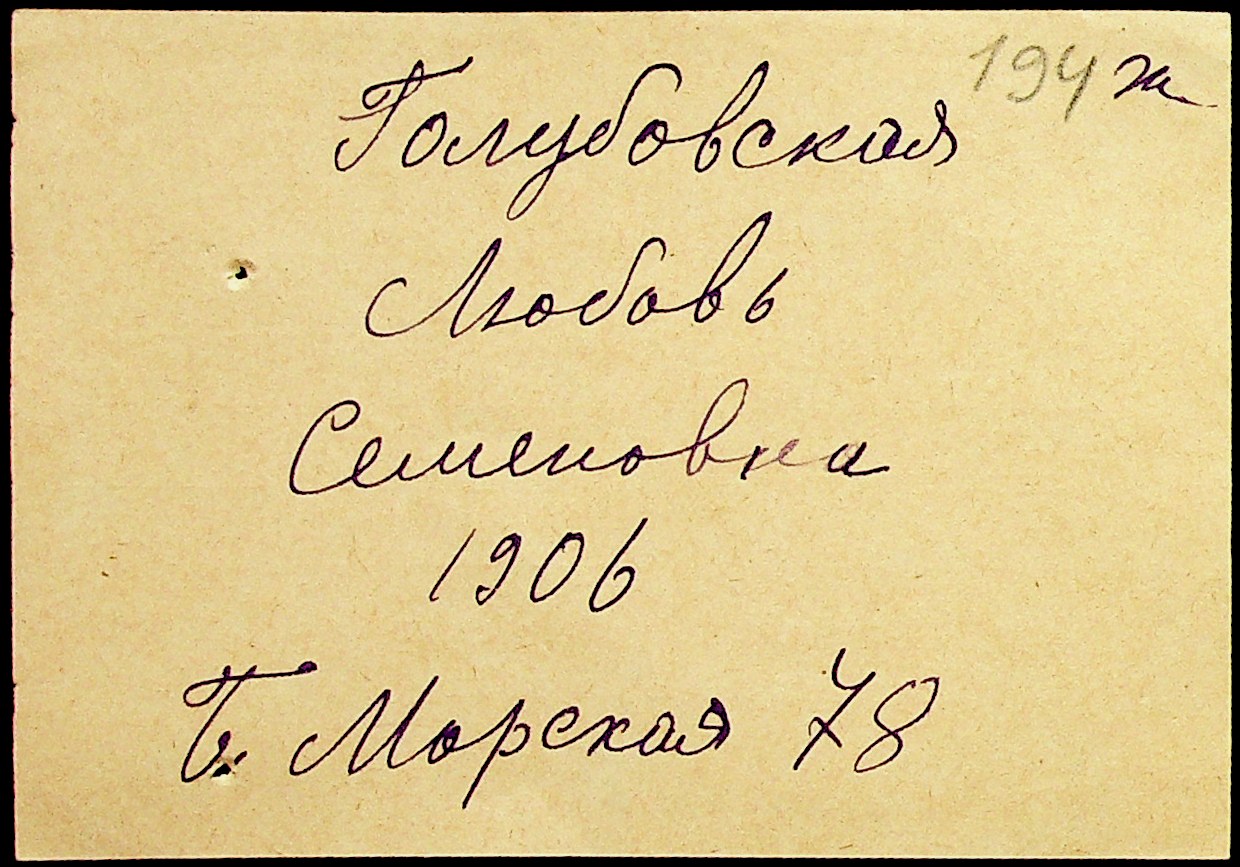 194 ж
Голубовская
Любовь
Семеновна
1906
Б. Морская 78